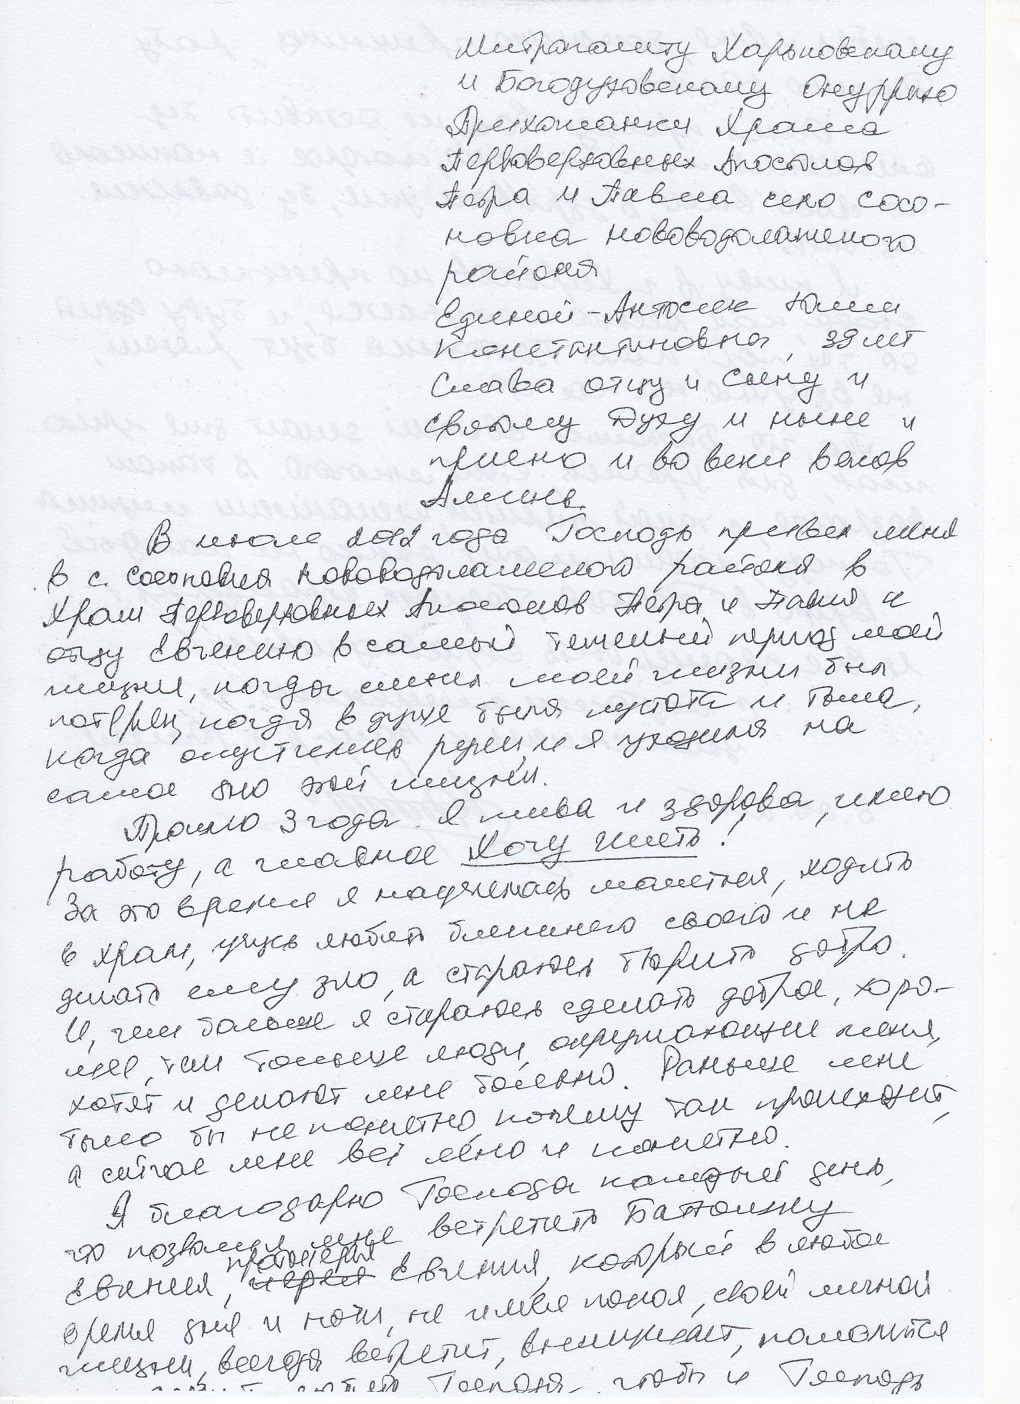 Митрополиту Харьковскому
и Богодуховскому Онуфрию
Прихожанки Храма
Первоверховных Апостолов
Петра и Павла село Сосо-
новка нововодолажского
района
Единой-Антосюк Юлии
Константиновны, 39 лет
Слава отцу и сыну и
святому Духу и ныне и
присно и во веки веков
Аминь.
В июле 2012 года Господь привел меня
в с. Сосоновка Нововодолажского района в
Храм Первоверховных Апостолов Петра и Павла к
отцу Евгению в самый тяжелый период моей
жизни, когда смысл моей жизни был
потерян, когда в душе была пустота и тьма,
когда опустились руки, и я уходила на
самое дно этой жизни.
Прошло 3 года. Я жива и здорова, имею
работу, а главное Хочу жить!
За это время я научилась молиться, ходить
в храм, учусь любить ближнего своего и не
делать ему зло, а стараюсь творить добро.
И, чем больше я стараюсь сделать доброе, хоро-
шее, тем больше люди, окружающие меня,
хотят и делают мне больно. Раньше мне
было бы не понятно почему так происходит,
а сейчас мне всё ясно и понятно.
Я благодарю Господа каждый день,
что позволил мне встретить Батюшку
Евгения, протоиерея Евгения, который в любое
время дня и ночи, не имея покоя, своей личной
жизни, всегда встретит, выслушает, помолится
Господа, чтобы и Господь